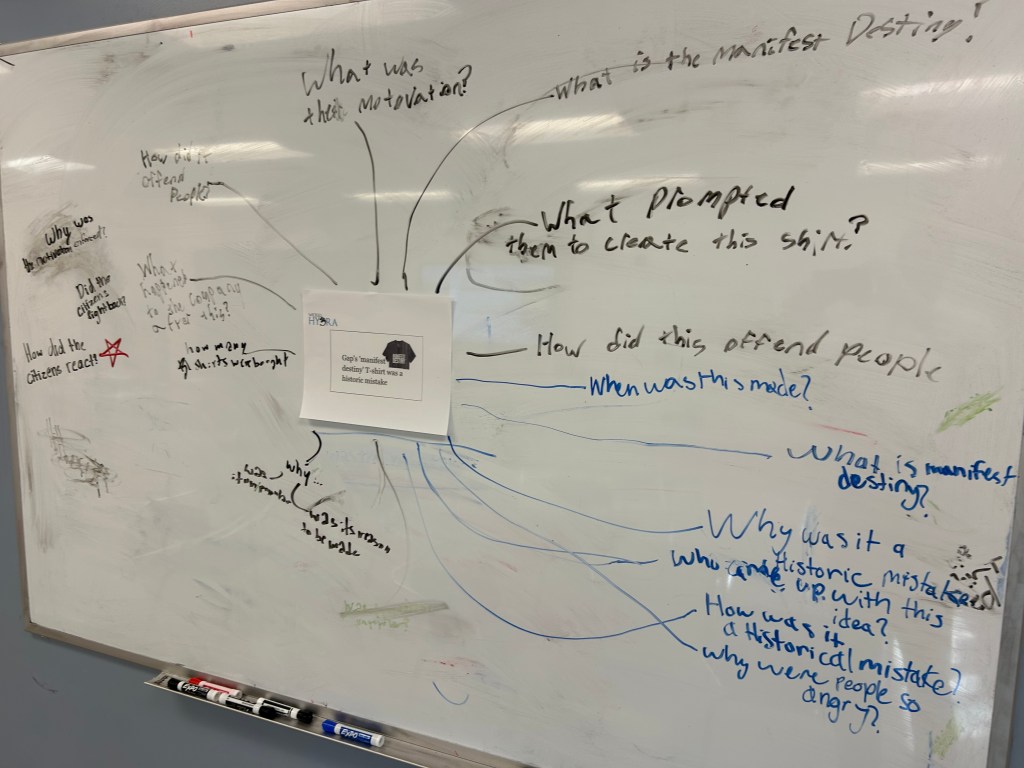 What was
their motovation?
What is the manifest Destiny?
How did it
offend
People?
What Prompted
them to create this shirt?
Why was
Did the
citizens
fight back?
What
happened
to the company
after this?
How did the
citizens react?
how many
shirts wer bought
HYDRA
Gap's 'manifest
destiny' T-shirt was a
historic mistake
How did this offend people
When was this made?
What is manifest
destiny?
why...
was its reason
to be made
Why was it a
Historic mistake
Who came up with this
idea?
How was it
a Historical mistake?
why were people so
angry?
EXPO
EXPO